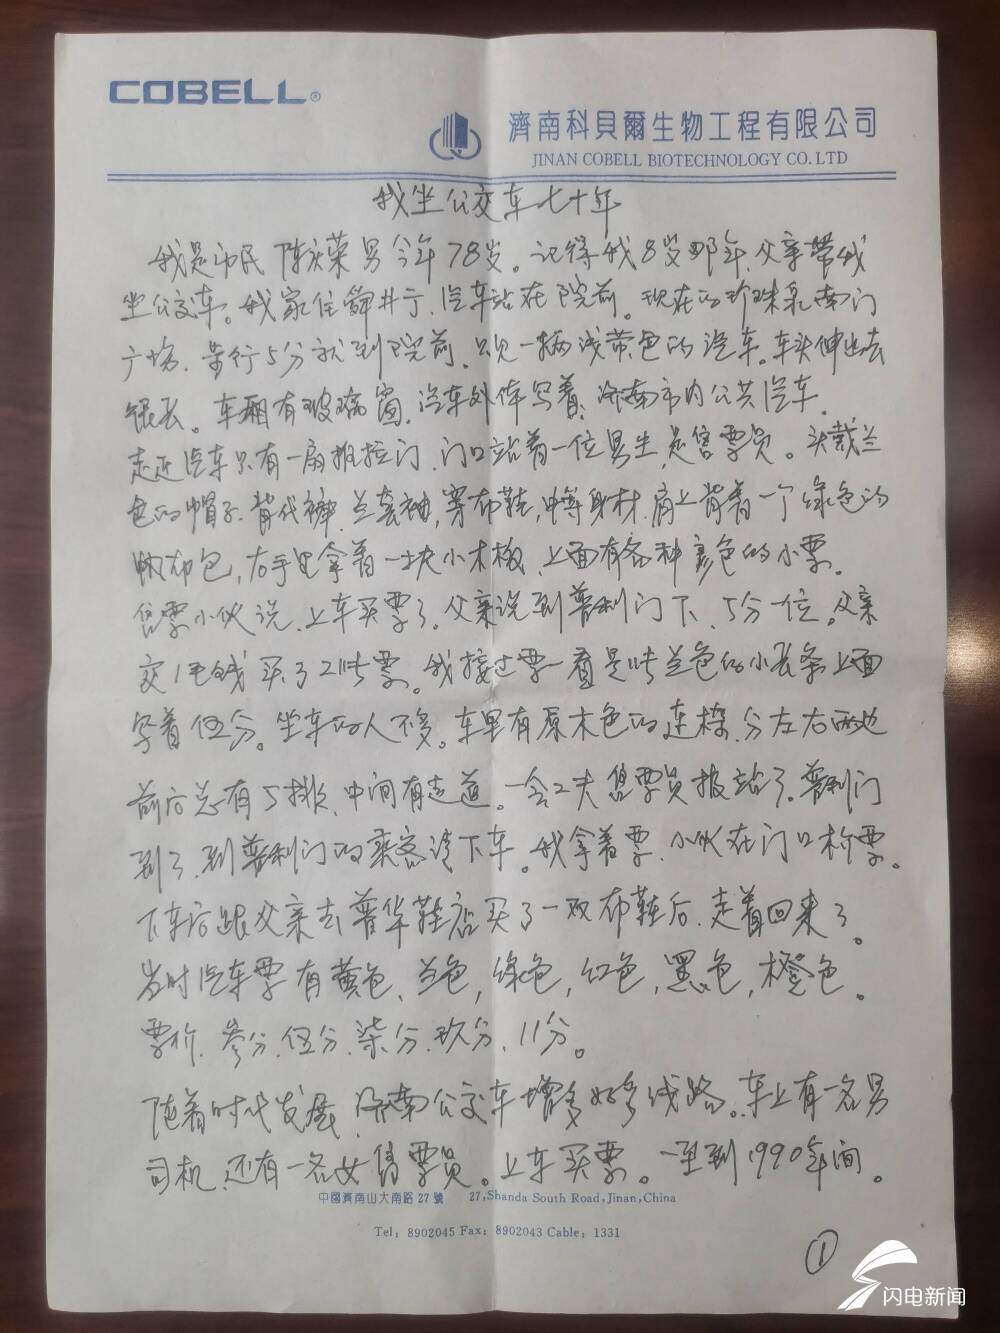 COBELL®
濟南科貝爾生物工程有限公司
JINAN COBELL BIOTECHNOLOGY CO.LTD
我坐公交车七十年
我是市民陈庆荣男今年78岁。记得我8岁那年,父亲带我
坐公交车。我家住舜井亍,汽车站在院前。现在的珍珠泉南门
广场,步行5分就到院前,只见一辆浅蓝色的汽车。车头伸出去
很长。车厢有玻璃窗,汽车外体写着,济南市内公共汽车,
走近汽车只有一扇推拉门,门口站着一位男生,是售票员。头戴兰
色的帽子,背代裤,兰套袖,穿布鞋,中等身材,肩上背着一个绿色的
帆布包,右手里拿着一块小木板,上面有各种彩色的小票。
售票小伙说,上车买票了。父亲说到普利门下,5分一位。父亲
交1毛钱买了2张票。我接过票一看是张兰色的小长条上面
写着伍分。坐车的人不多。车里有原木色的连椅,分左右两边
前后总有5排,中间有走道。一会工夫售票员报站了。普利门
到了,到普利门的乘客请下车。我拿着票,小伙在门口检票。
下车后跟父亲去普华鞋店买了一双布鞋后,走着回来了。
当时汽车票有黄色、兰色,绿色,红色,黑色,橙色。
票价,叁分,伍分,柒分,玖分,11分。
随着时代发展,济南公交车增多好多线路。车上有一名男
司机,还有一名女售票员。上车买票。一直到1990年间。
中國濟南山大南路27號 27,Shanda South Road,Jinan,China
Tel: 8902045 Fax: 8902043 Cable: 1331
①
闪电新闻